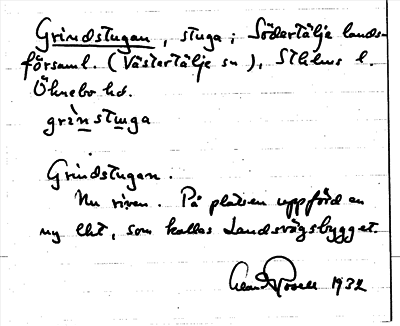 Grindstugan, stuga; Södertälje lands-
församl. (Västertälje sn), Sthlms l.
Öknebo hd.
grìnstuga
Grindstugan.
Nu riven. På platsen uppförd en
ny lht, som kallas Landsvägsbygget.
1932